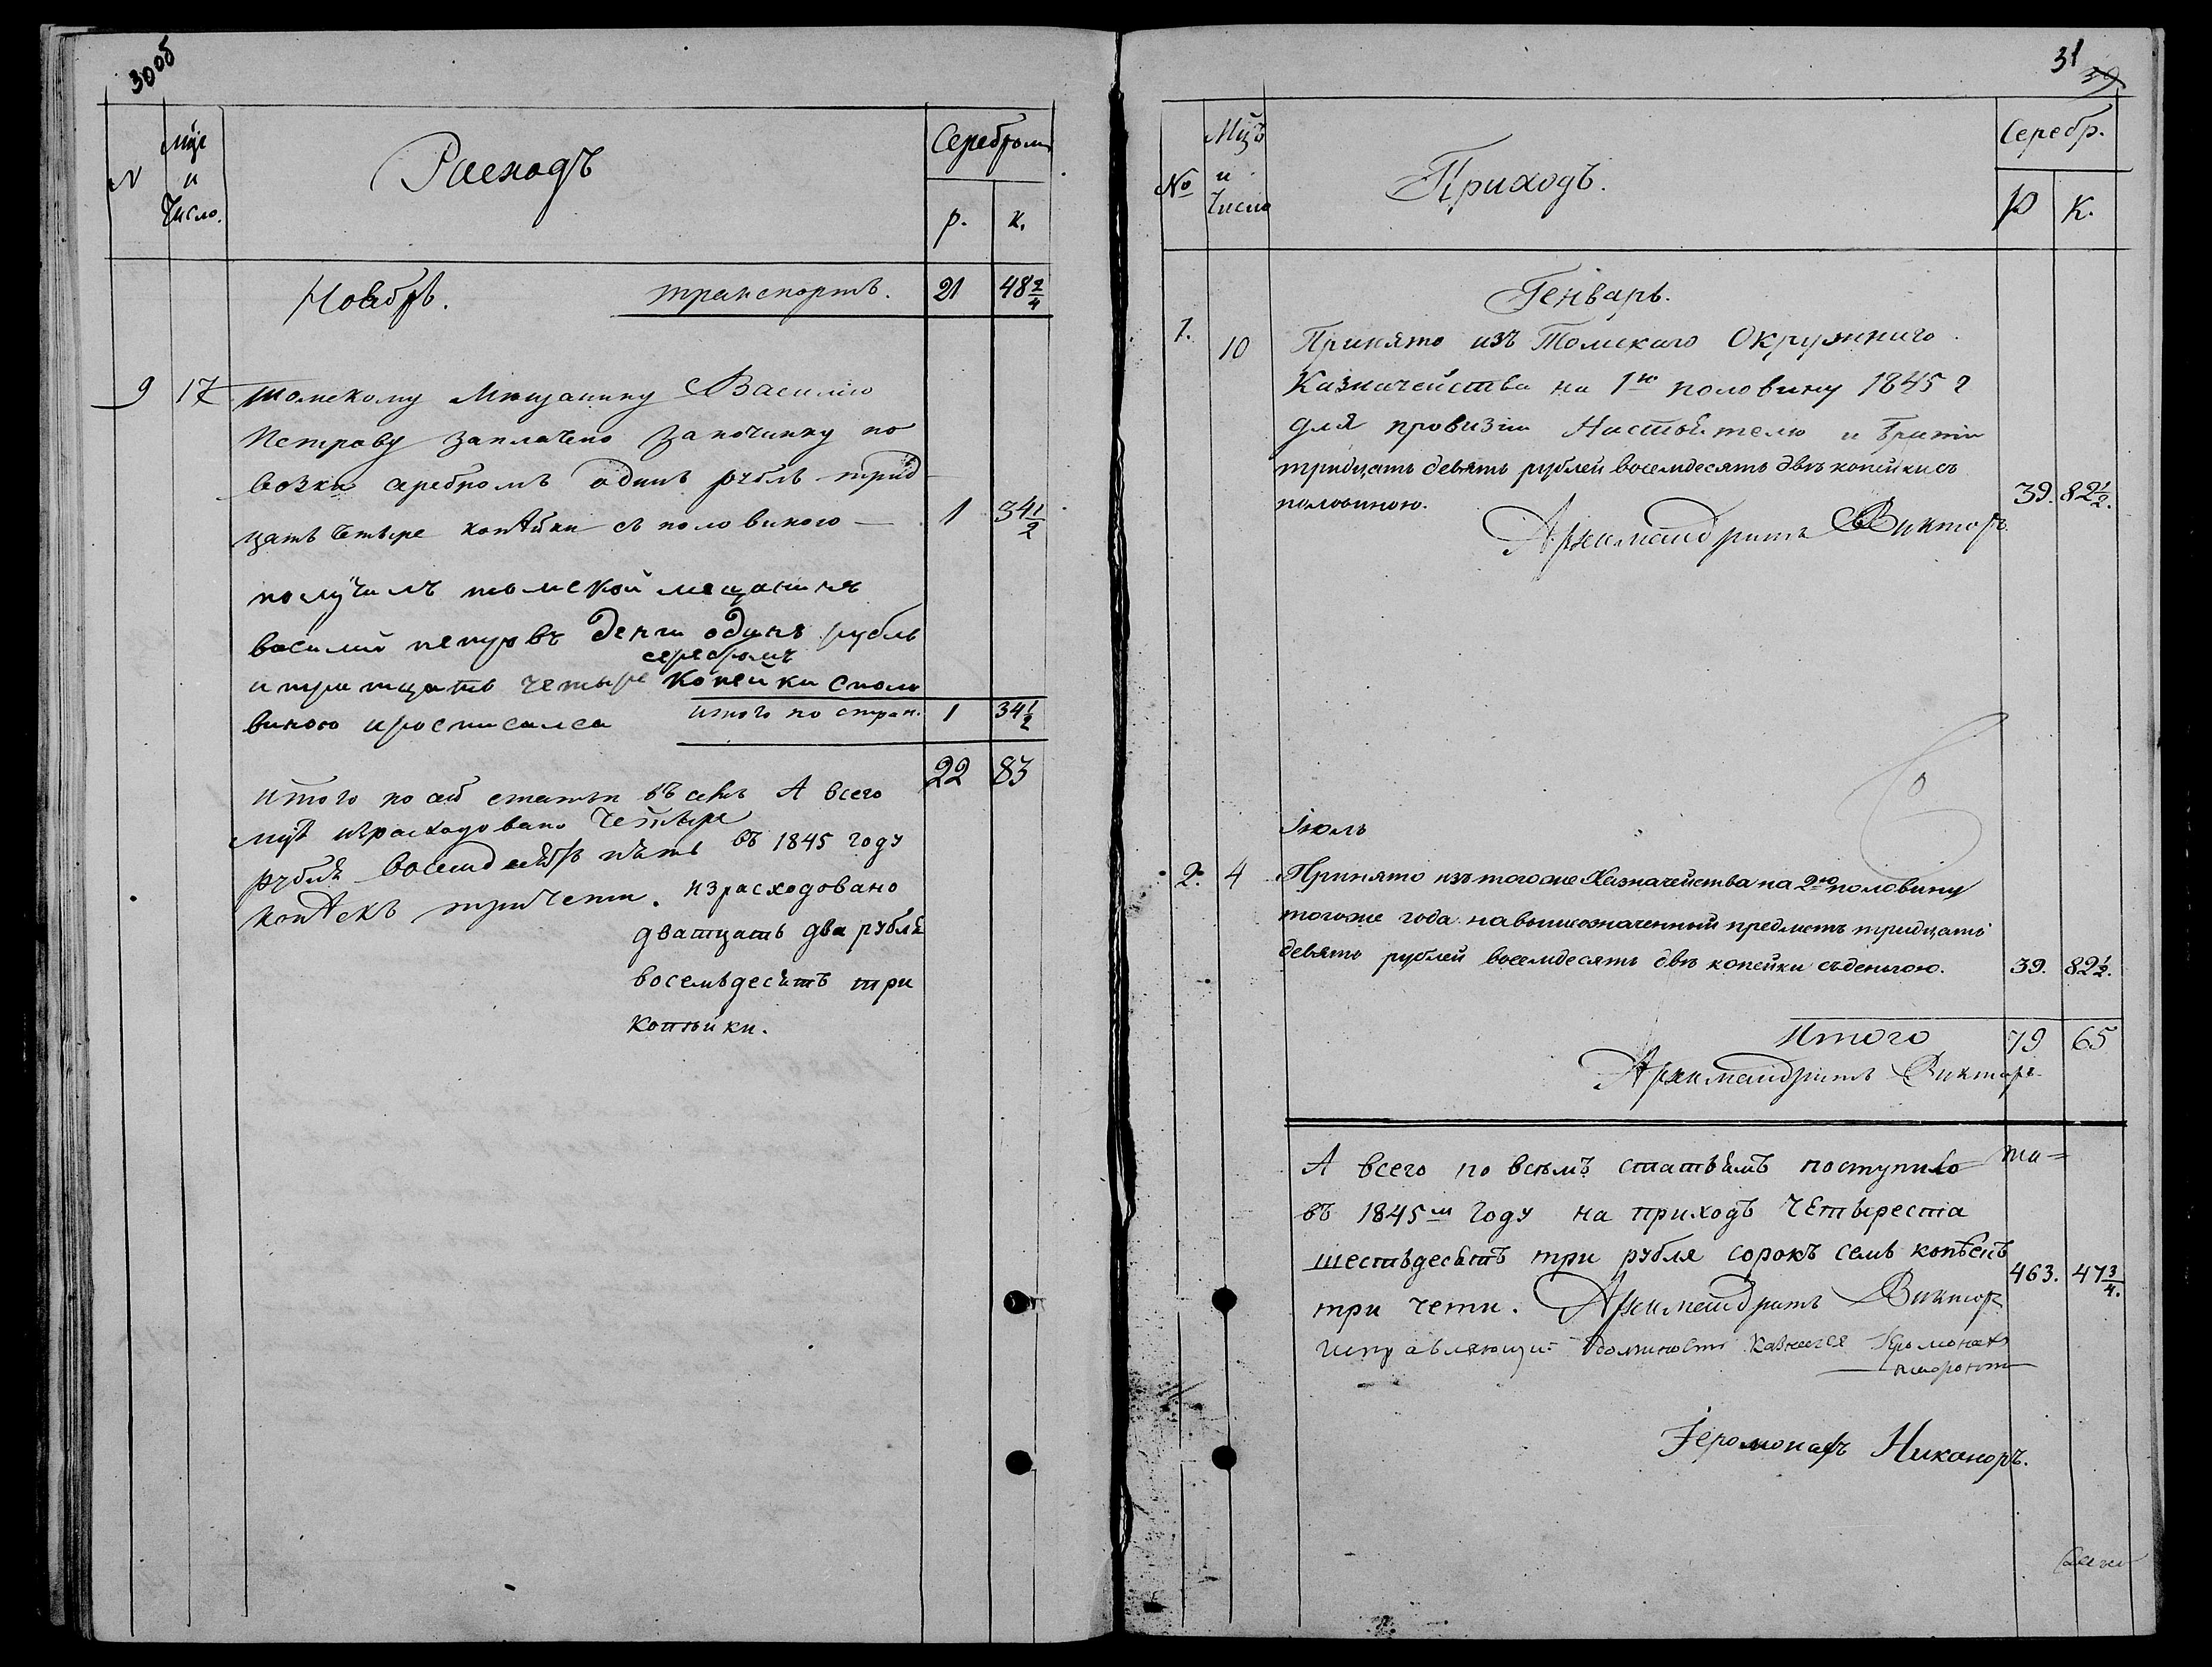 30об
N
Мце
и
Число.
Расходъ
Серебромъ
р.
к.
Ноябрь.
транспортъ.
21
48 2/4
9
17
Томскому Мещанину Василию
Петрову заплачено за починку по
возки серебромъ одинъ рубль трид
цать четыре копѣйки съ половиною —
1
34 1/2
получилъ томской мещанинъ
василий петровъ денги одинъ рубль
серебромъ
и тритцать четыре копейки споло
виною иросписался
итого по стран.
1
34 1/2
22
83
итого по сей статьи въ семъ
мцѣ израсходовано четыре
рубля восемдесятъ пять
копѣекъ три чети.
А всего
въ 1845 году
израсходовано
дватцать два рубля
восемьдесятъ три
копѣйки.
31
39
№
Мцъ
и
Число
Приходъ.
Серебр.
Р
К.
Генварь.
1.
10
Принято изъ Томскаго Окружнаго
Казначейства на 1ю половину 1845 г
для провизіи Настоятелю и братіи
тридцать девять рублей восемдесятъ двѣ копѣйки съ
половиною.
39.
82 1/2.
Архимандритъ Викторъ
Іюль
2.
4
Принято изъ того же Казначейства на 2ю половину
тогоже года на вышеозначенный предметъ тридцать
девять рублей восемдесятъ двѣ копейки съ деньгою.
39.
82 1/2.
Итого
79
65
Архимандритъ Викторъ
А всего по всѣмъ статьямъ поступило
въ 1845м году на приходъ четыреста
шестьдесятъ три рубля сорокъ семь копѣекъ
три чети. Архимандритъ Викторъ
463.
47 3/4.
должность казначея Іеромонахъ
Іеромонахъ Никаноръ.